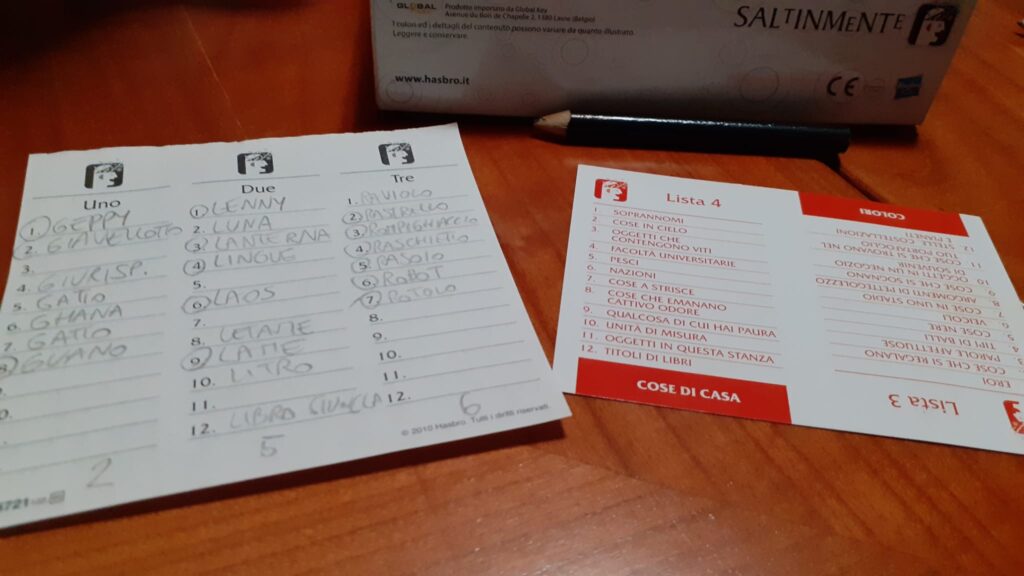 GLOBAL
Prodotto importato da Global Key
Avenue du Bois de Chapelle 2, 1380 Lasne (Belgio)
I colori ed i dettagli del contenuto possono variare da quanto illustrato.
Leggere e conservare.
www.hasbro.it
SALTINMENTE
CE
Uno
1. GEPPY
2. GIAVELLOTTO
3.
4. GIURISP.
5. GATTO
6. GHANA
7. GATTO
8. GUANO
2
Due
1. LENNY
2. LUNA
3. LANTERNA
4. LINGUE
5.
6. LAOS
7.
8. LETAME
9. LATTE
10. LITRO
11.
12. LIBRO GIUNGLA
5
Tre
1. RAVIOLO
2. RASTRELLO
3. ROMPIGHIACCIO
4. RASCHIETTO
5. RASOIO
6. ROBOT
7. ROTOLO
8.
9.
10.
11.
12.
6
© 2010 Hasbro. Tutti i diritti riservati.
Lista 4
1. SOPRANNOMI
2. COSE IN CIELO
3. OGGETTI CHE
CONTENGONO VITI
4. FACOLTÀ UNIVERSITARIE
5. PESCI
6. NAZIONI
7. COSE A STRISCE
8. COSE CHE EMANANO
CATTIVO ODORE
9. QUALCOSA DI CUI HAI PAURA
10. UNITÀ DI MISURA
11. OGGETTI IN QUESTA STANZA
12. TITOLI DI LIBRI
COSE DI CASA
Lista 3
EROI
COSE CHE SI REGALANO
PAROLE AFFETTUOSE
TIPI DI BALLI
COSE NERE
VEICOLI
COSE IN UNO STUDIO
ARGOMENTI DI PETTEGOLEZZO
COSE CHE SI SOGNANO
OGGETTI IN UN NEGOZIO
DI SOUVENIR
COSE CHE SI TROVANO NEL
TUO PORTAFOGLIO
12. STELLE, COSTELLAZIONI
E PIANETI
COLORI